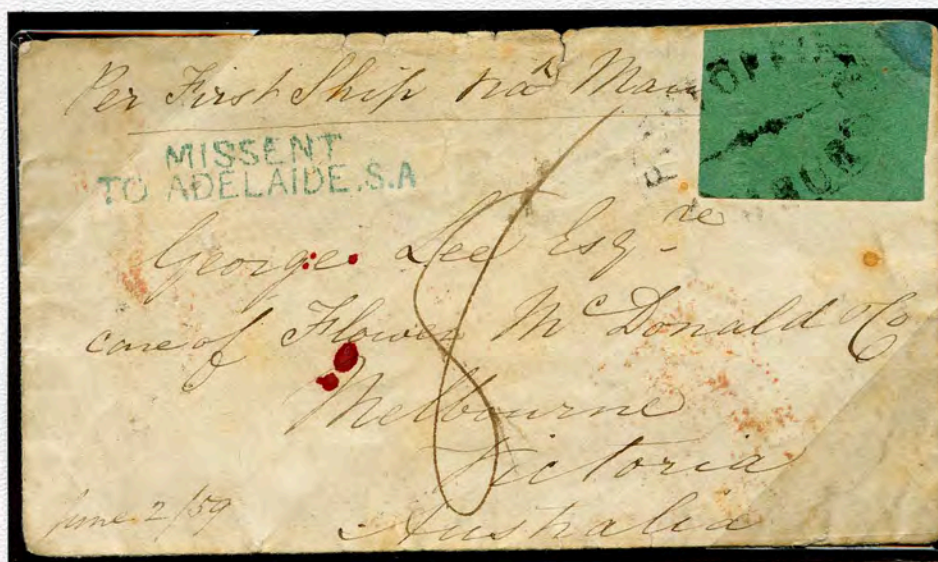 Per First Ship via
POST OFFICE
MISSENT
TO ADELAIDE.S.A
George Lee Esqre
care of Flower McDonald & Co
Melbourne
Victoria
Australia
June 2/59
8